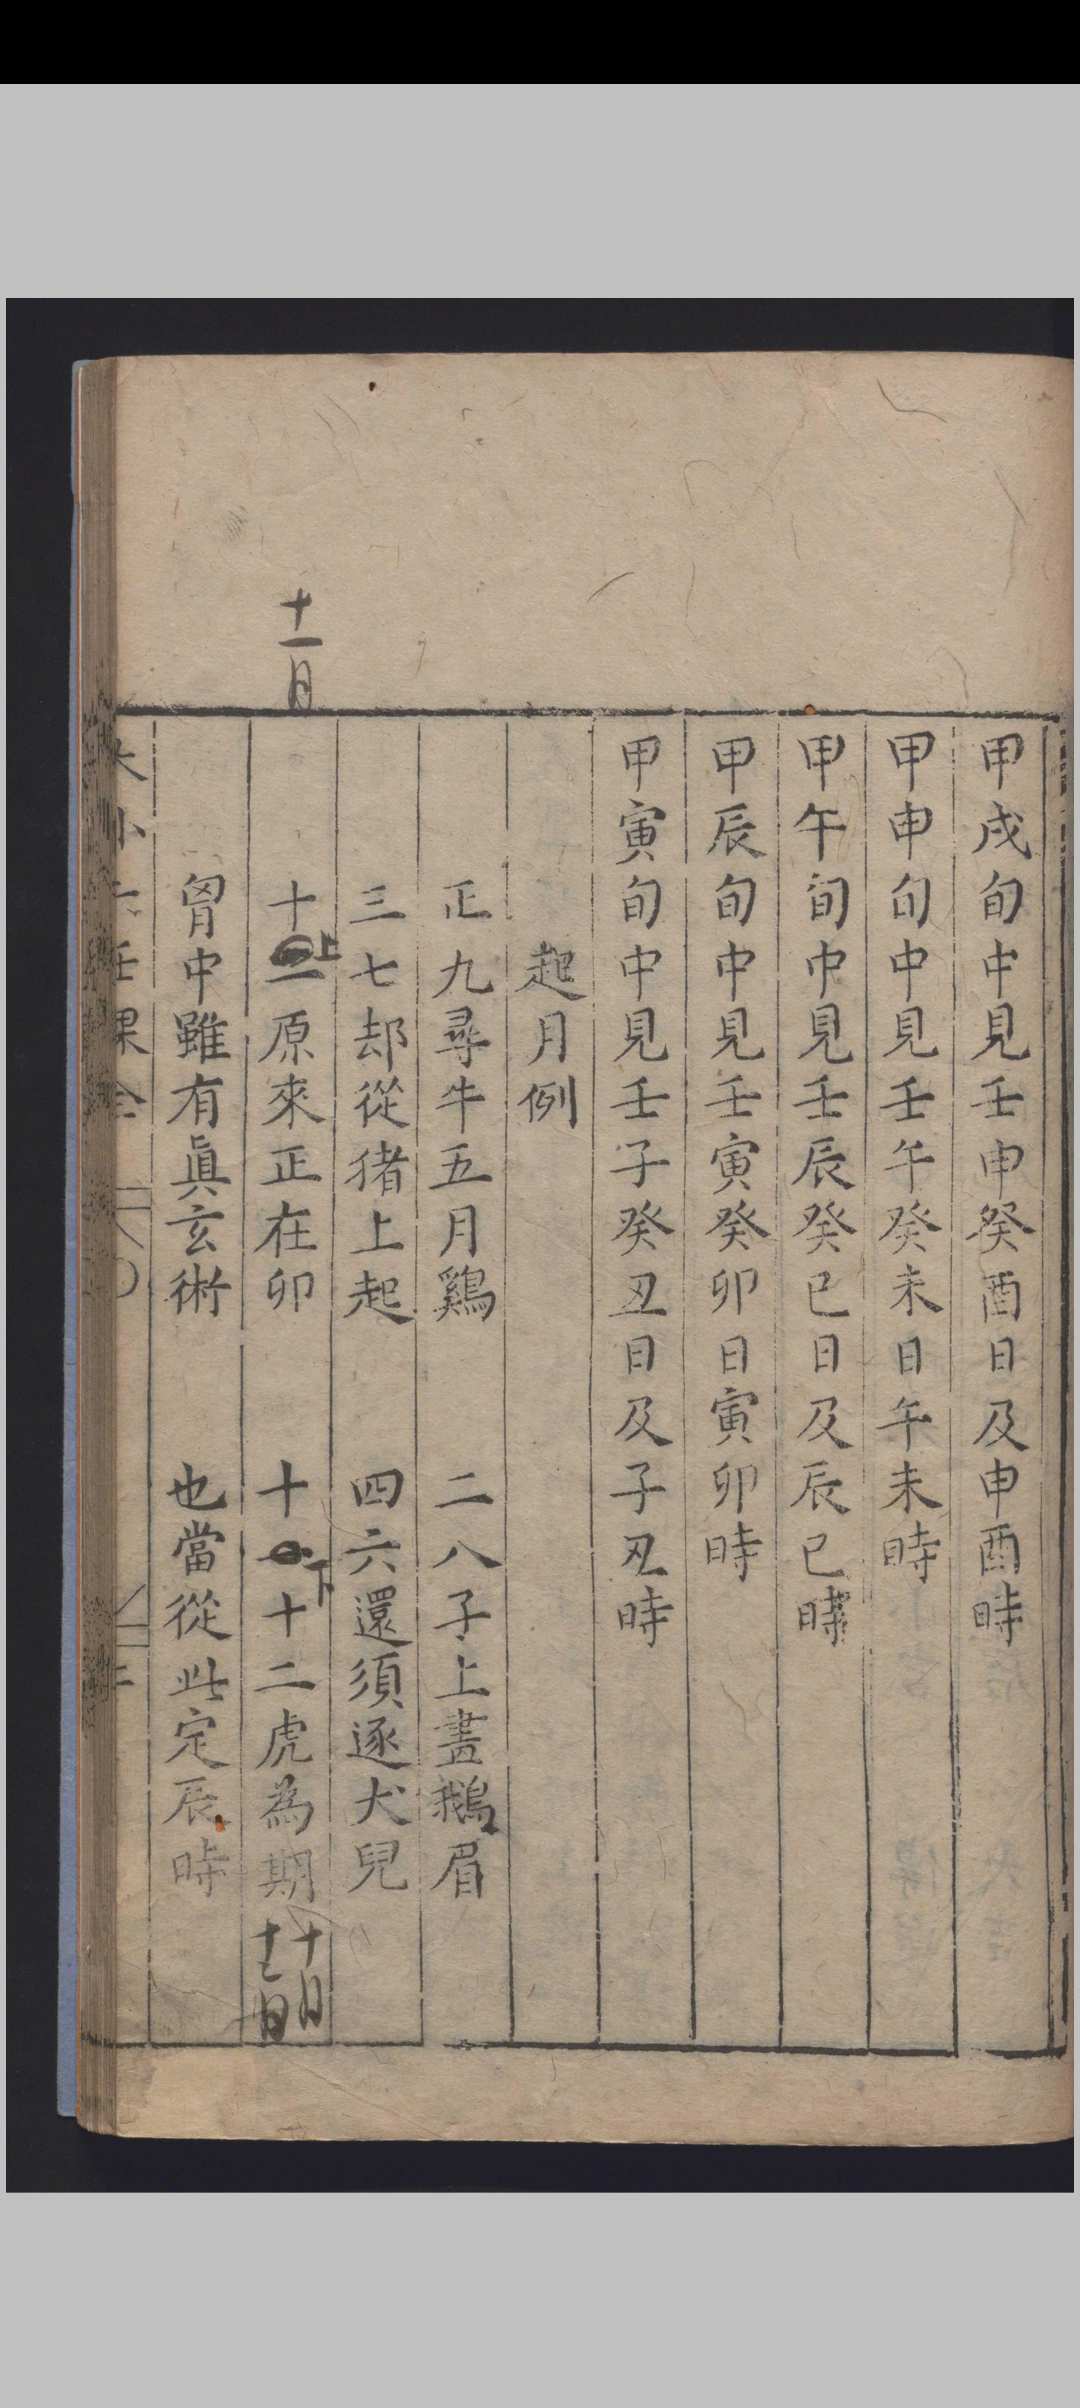 甲戌旬中見壬申癸酉日及申酉時
甲申旬中見壬午癸未日午未時
甲午旬中見壬辰癸巳日及辰巳時
甲辰旬中見壬寅癸卯日寅卯時
甲寅旬中見壬子癸丑日及子丑時
起月例
正九尋牛五月鷄 二八子上畫鵝眉
三七却從猪上起 四六還須逐犬兒
十一月
十一上原來正在卯 十下十二虎為期 十月
胷中雖有眞玄術 也當從此定辰時
大小六壬課全